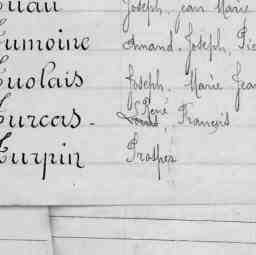 Joseph, Jean Marie
Lumoine Amand, Joseph, Pie
Luolais Joseph, Marie Jean
René
Turcas - Louis, François
Turpin Prosper